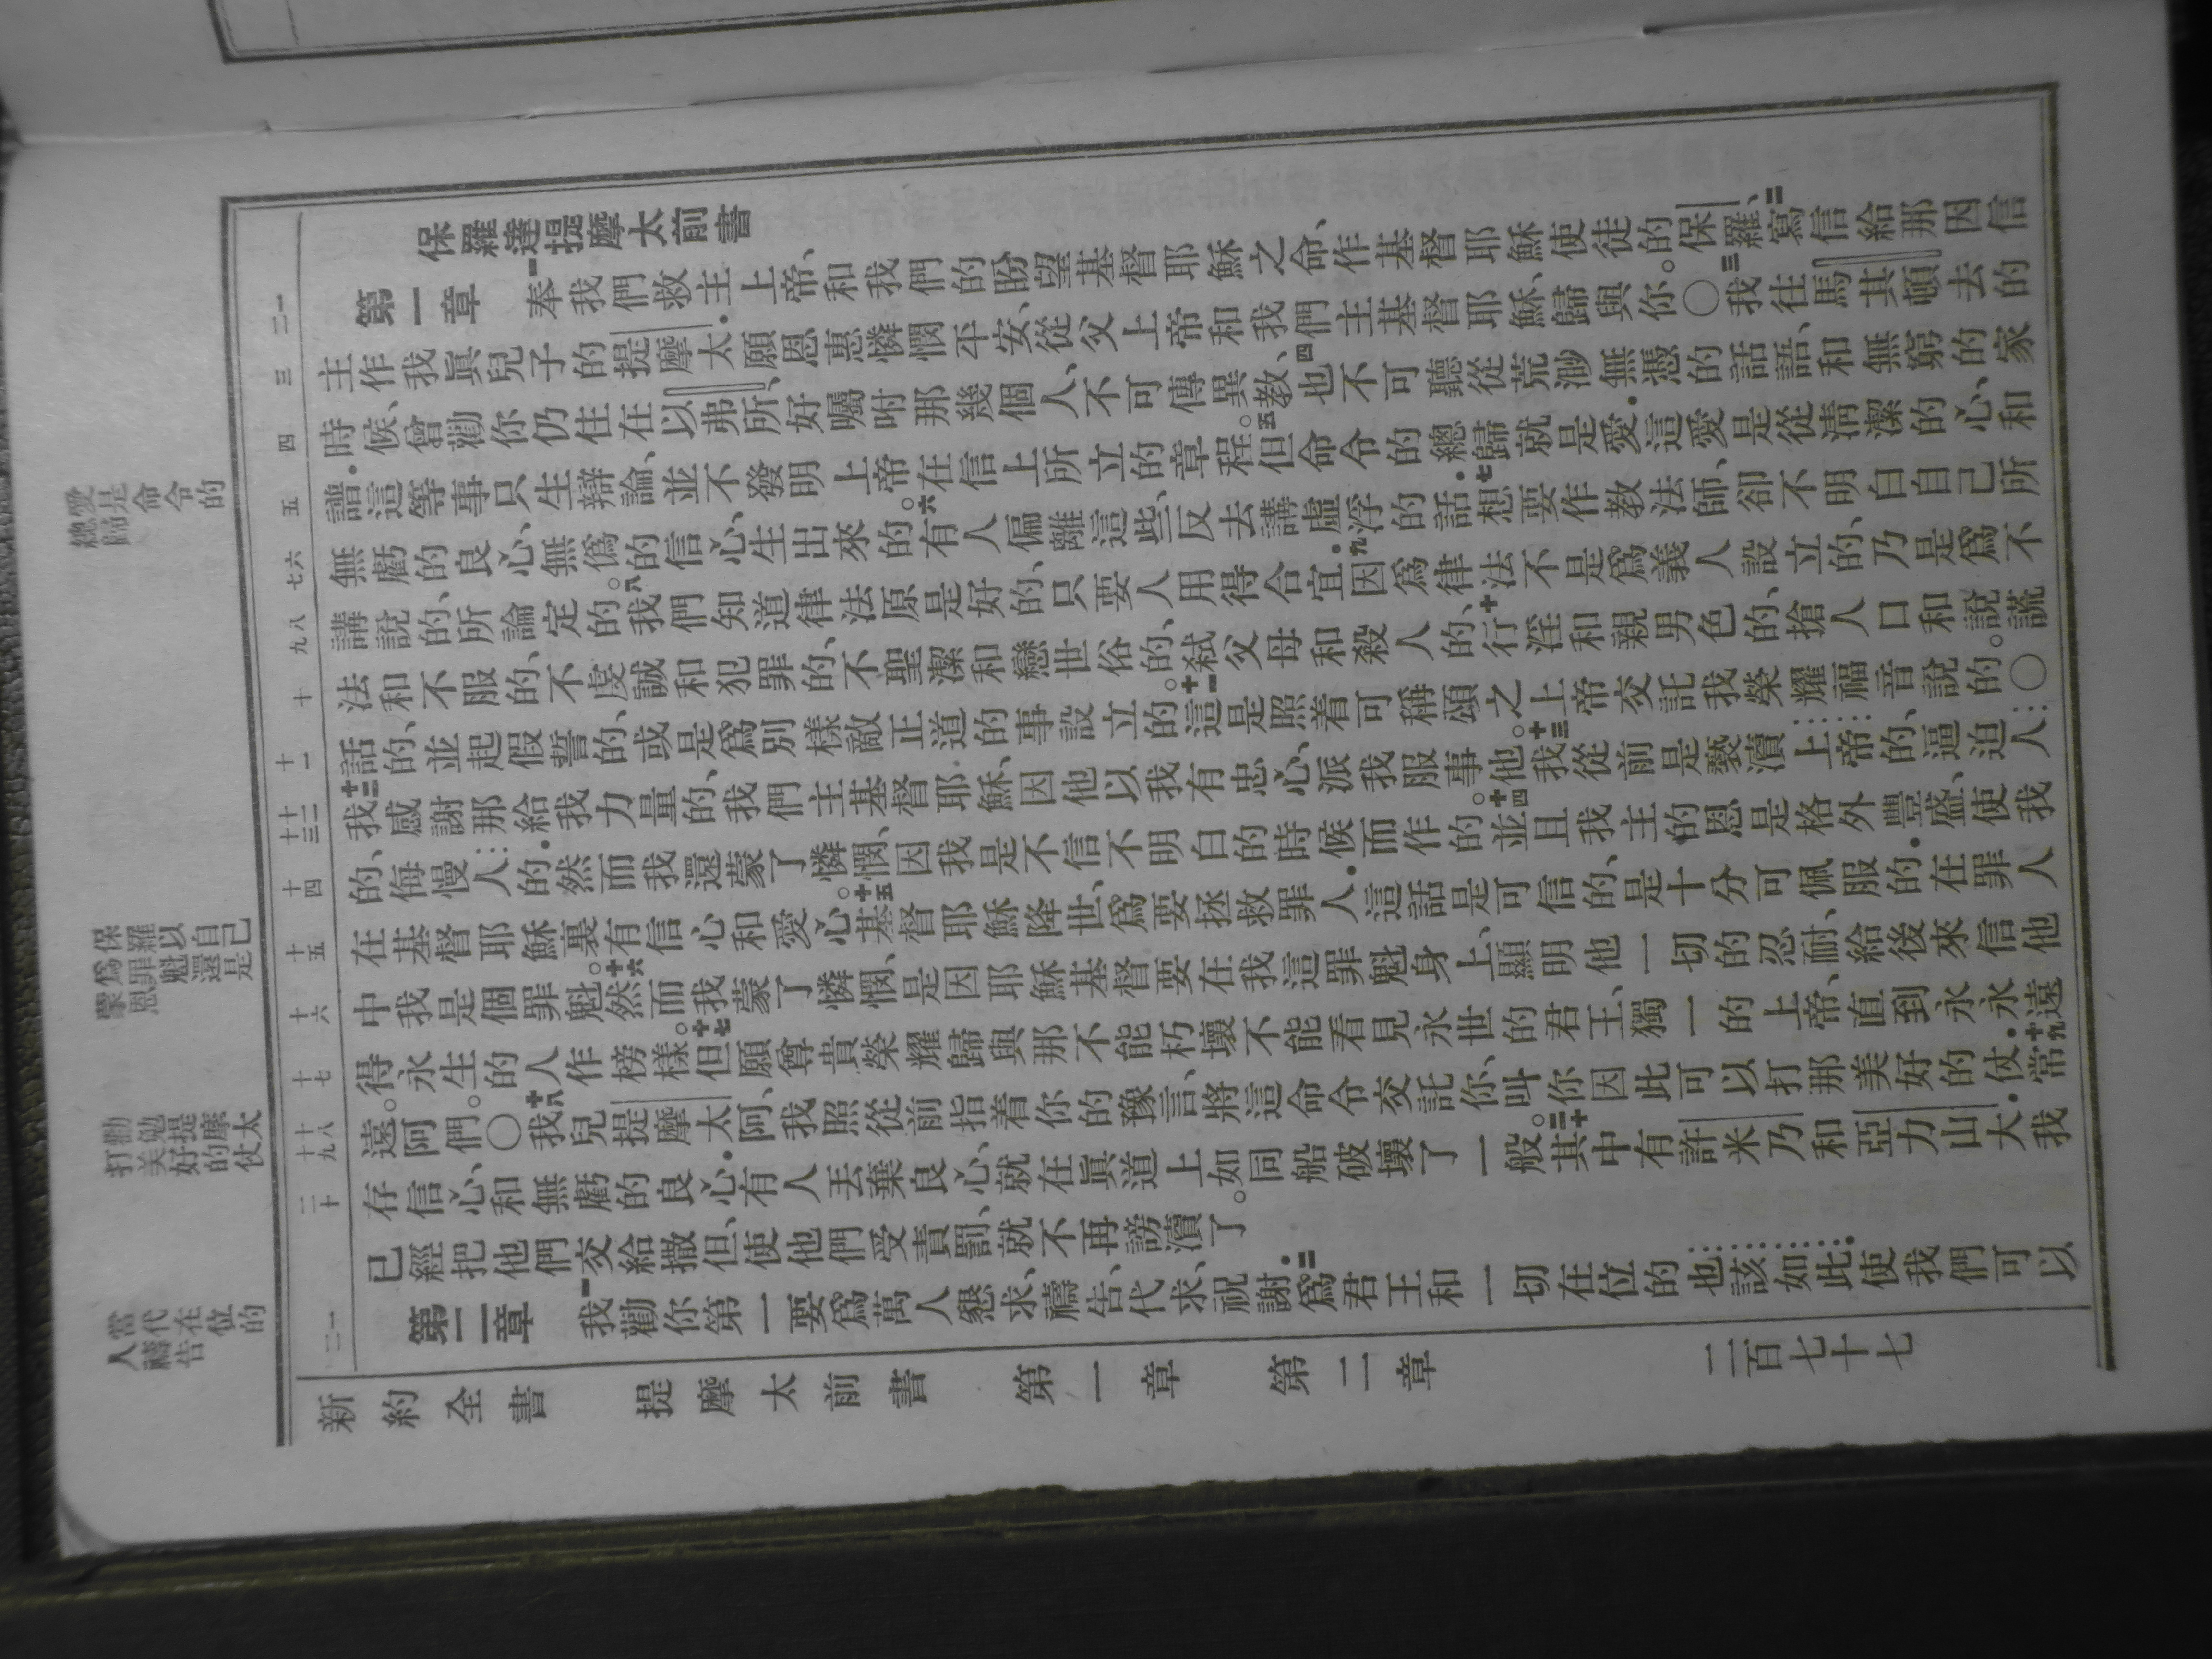 愛是命令的
總歸
保羅以自己
爲罪魁還是
蒙恩
勸勉提摩太
打美好的仗
當代在位的
人禱告
一 二 三 四 五 六 七 八 九 十 十一 十二 十三 十四 十五 十六 十七 十八 十九 二十 一 二
保羅達提摩太前書
第一章 一奉我們救主上帝、和我們的盼望基督耶穌之命、作基督耶穌使徒的保羅、二寫信給那因信
主作我眞兒子的提摩太.願恩惠憐憫平安、從父上帝和我們主基督耶穌、歸與你。〇三我往馬其頓去的
時候、曾勸你仍住在以弗所、好囑咐那幾個人、不可傳異教、四也不可聽從荒渺無憑的話語、和無窮的家
譜.這等事只生辯論、並不發明上帝在信上所立的章程。五但命令的總歸就是愛.這愛是從清潔的心、和
無虧的良心、無僞的信心、生出來的。六有人偏離這些、反去講虛浮的話.七想要作教法師、卻不明白自己所
講說的、所論定的。八我們知道律法原是好的、只要人用得合宜.九因爲律法不是爲義人設立的、乃是爲不
法和不服的、不虔誠和犯罪的、不聖潔和戀世俗的、弑父母和殺人的、十行淫和親男色的、搶人口和說謊
話的、並起假誓的、或是爲別樣敵正道的事設立的。十一這是照着可稱頌之上帝交託我榮耀福音說的。〇
十二我感謝那給我力量的、我們主基督耶穌、因他以我有忠心、派我服事他。十三我從前是褻瀆上帝的、逼迫人
的、侮慢人的.然而我還蒙了憐憫、因我是不信不明白的時候而作的。十四並且我主的恩是格外豐盛、使我
在基督耶穌裏有信心和愛心。十五基督耶穌降世、爲要拯救罪人.這話是可信的、是十分可佩服的.在罪人
中我是個罪魁。十六然而我蒙了憐憫、是因耶穌基督要在我這罪魁身上、顯明他一切的忍耐、給後來信他
得永生的人作榜樣。十七但願尊貴榮耀歸與那不能朽壞不能看見永世的君王、獨一的上帝、直到永永遠
遠。阿們。〇十八我兒提摩太阿、我照從前指着你的豫言、將這命令交託你、叫你因此可以打那美好的仗.十九常
存信心、和無虧的良心.有人丟棄良心、就在眞道上如同船破壞了一般。二十其中有許米乃和亞力山大.我
已經把他們交給撒但、使他們受責罰、就不再謗瀆了。
第二章 一我勸你第一要爲萬人懇求、禱告、代求、祝謝.二爲君王和一切在位的也該如此.使我們可以
新約全書 提摩太前書 第一章 第二章 二百七十七